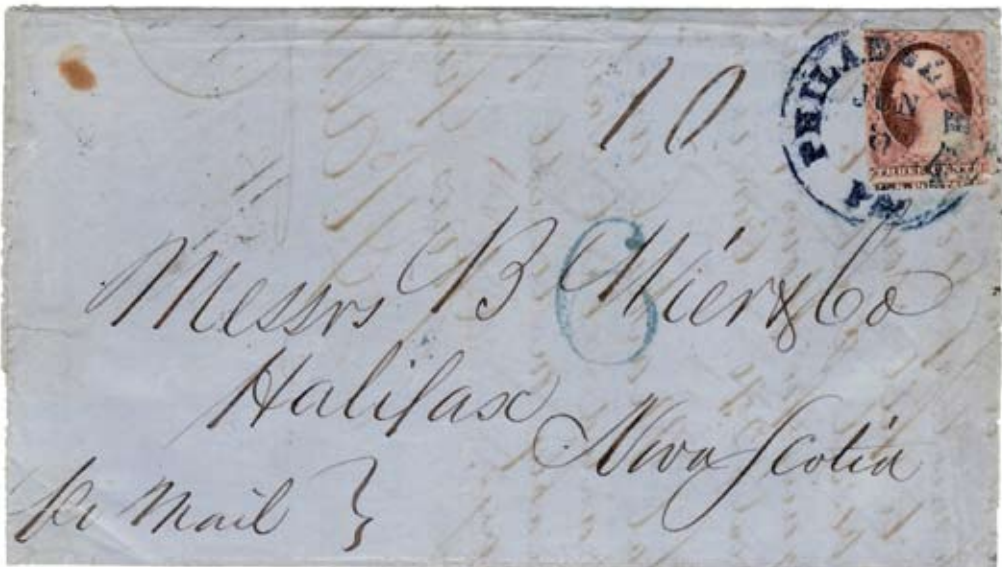 10
PHILADELPHIA
JUN
Pa
6
Messrs B Wier & Co
Halifax
Nova Scotia
Per Mail